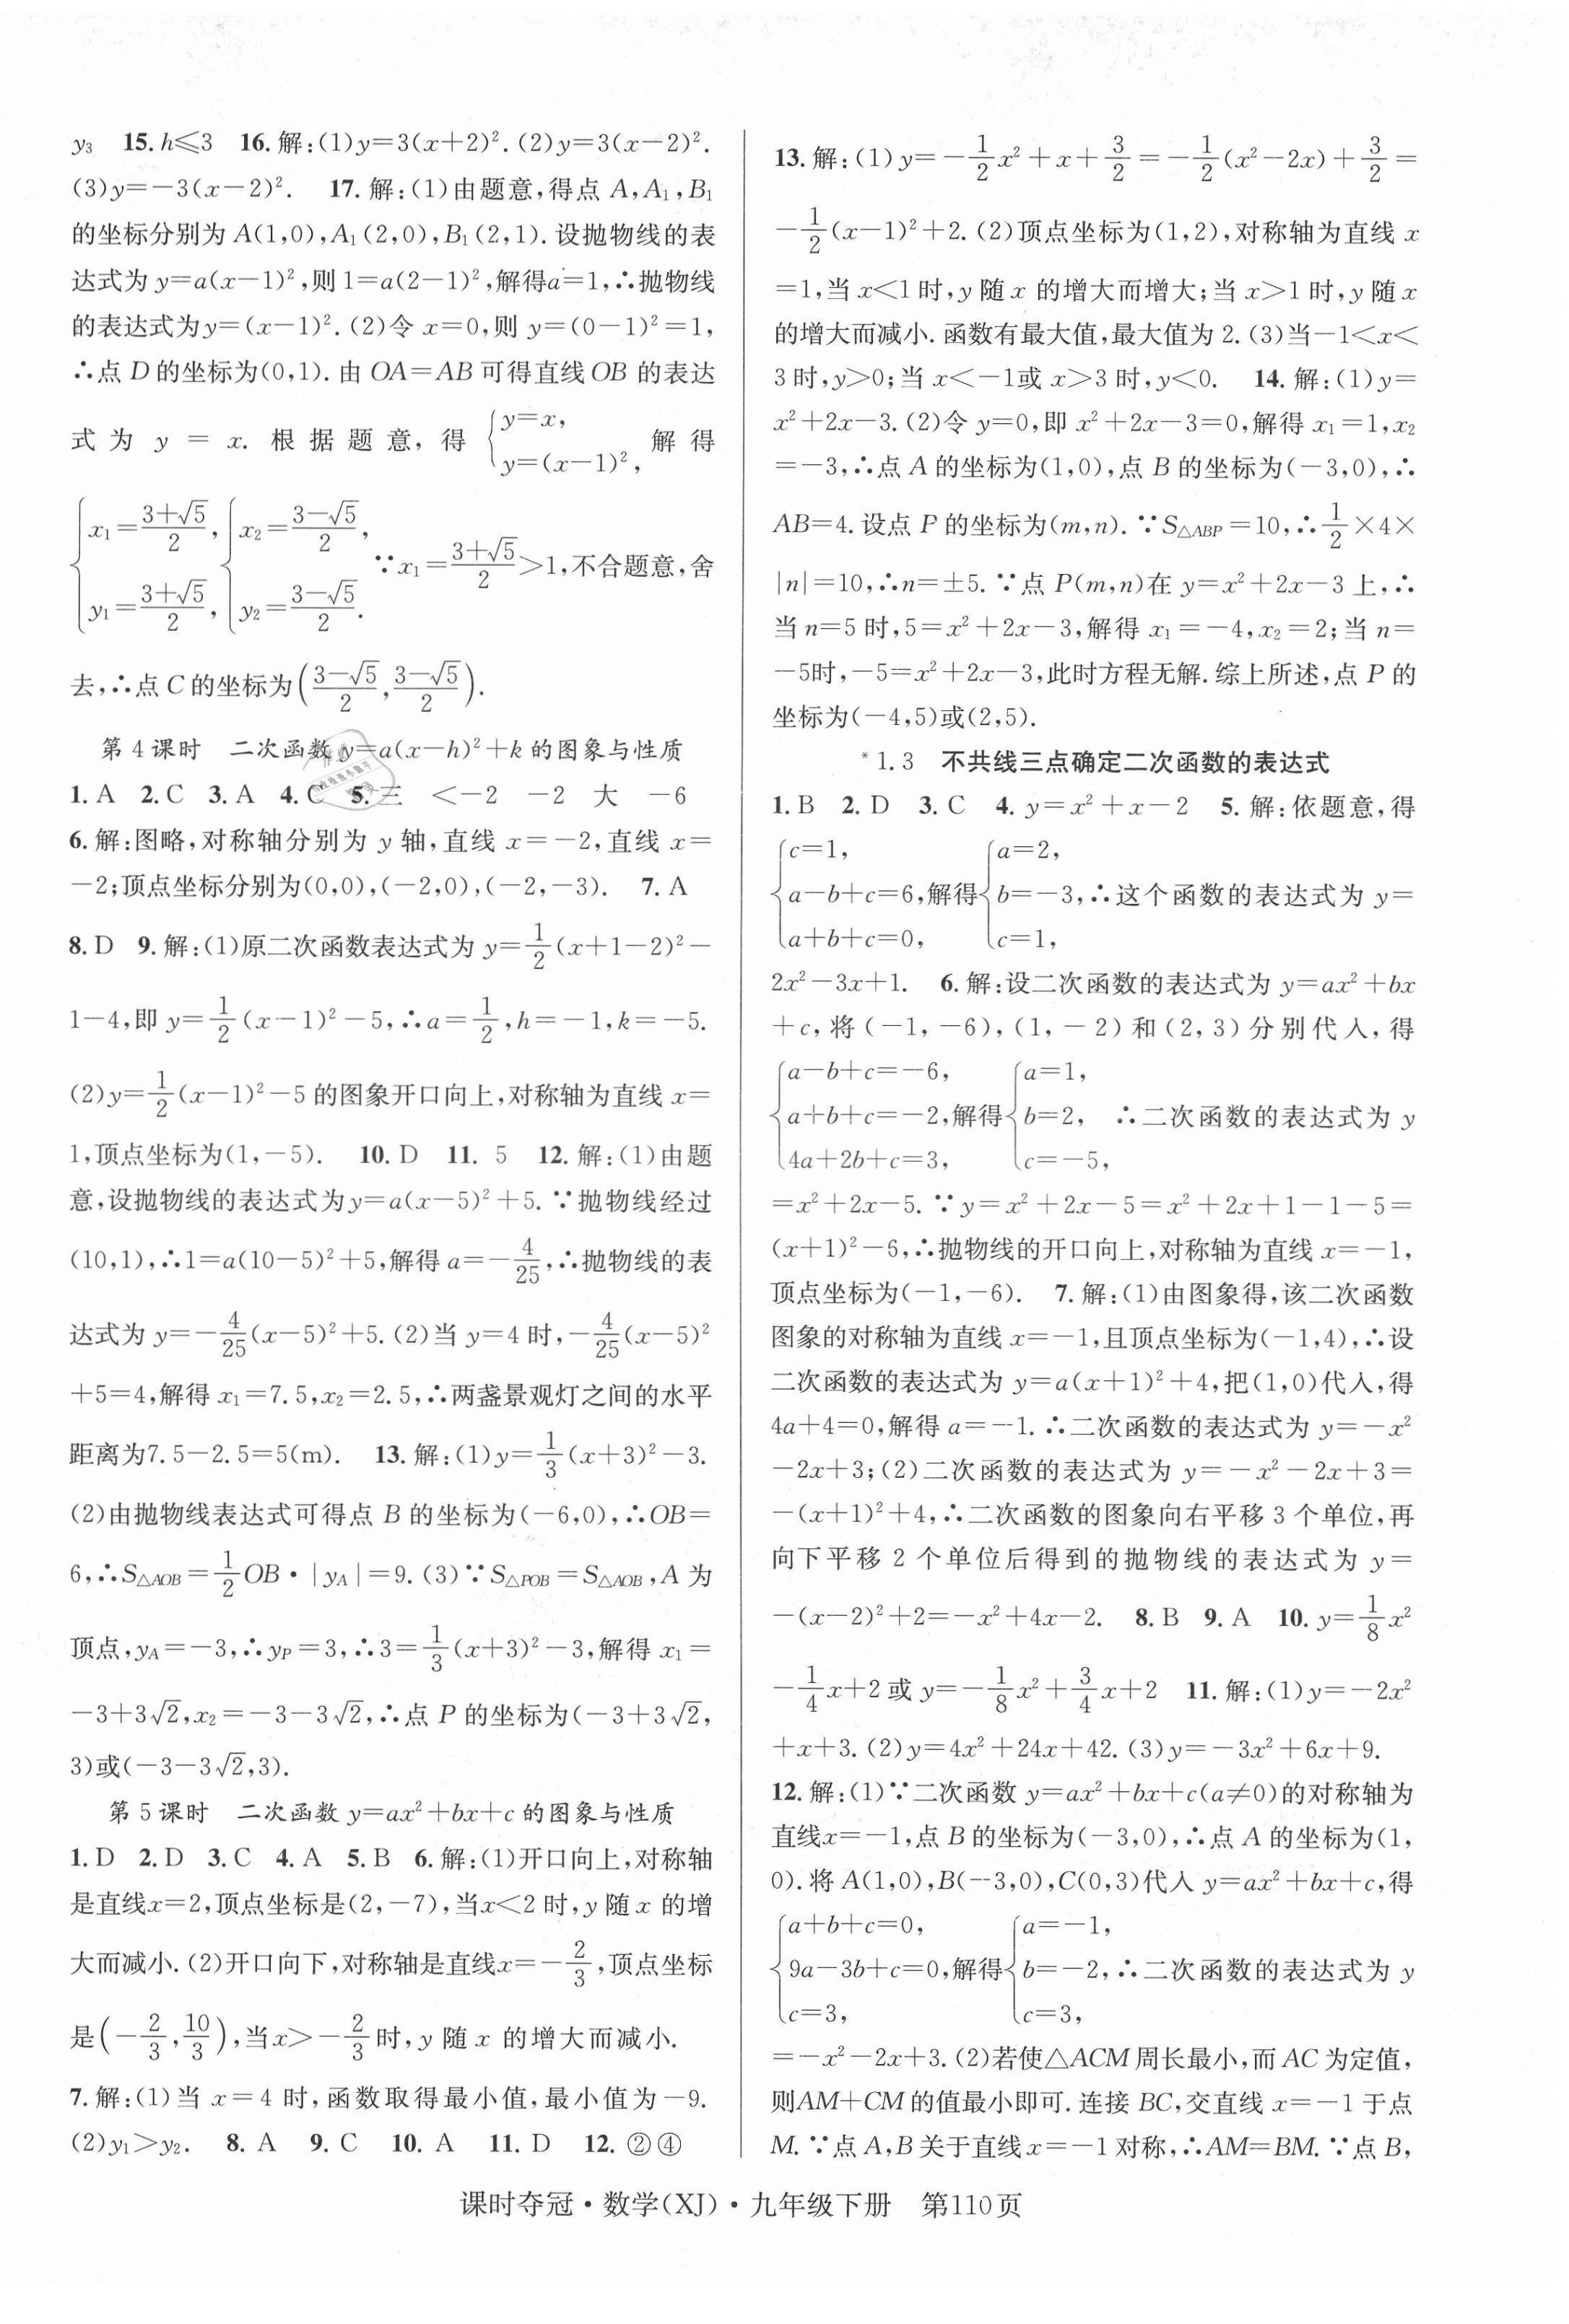 y₃　15. h≤3　16. 解:(1)y=3(x+2)². (2)y=3(x-2)².
(3)y=-3(x-2)².　17. 解:(1)由题意,得点 A,A₁,B₁
的坐标分别为 A(1,0),A₁(2,0),B₁(2,1). 设抛物线的表
达式为 y=a(x-1)²,则 1=a(2-1)²,解得a=1,∴抛物线
的表达式为y=(x-1)². (2)令 x=0,则 y=(0-1)²=1,
∴点 D 的坐标为(0,1). 由 OA=AB 可得直线 OB 的表达
式为 y = x. 根据题意,得 {y=x, y=(x-1)², 解得
{x₁=(3+√5)/2, y₁=(3+√5)/2, {x₂=(3-√5)/2, y₂=(3-√5)/2. ∵x₁=(3+√5)/2>1,不合题意,舍
去,∴点 C 的坐标为((3-√5)/2,(3-√5)/2).
第 4 课时　二次函数 y=a(x-h)²+k 的图象与性质
1. A　2. C　3. A　4. C　5. 三　<-2　-2　大　-6
6. 解:图略,对称轴分别为 y 轴,直线 x=-2,直线 x=
-2;顶点坐标分别为(0,0),(-2,0),(-2,-3).　7. A
8. D　9. 解:(1)原二次函数表达式为 y=1/2(x+1-2)²-
1-4,即 y=1/2(x-1)²-5,∴a=1/2,h=-1,k=-5.
(2)y=1/2(x-1)²-5 的图象开口向上,对称轴为直线 x=
1,顶点坐标为(1,-5).　10. D　11. 5　12. 解:(1)由题
意,设抛物线的表达式为y=a(x-5)²+5. ∵抛物线经过
(10,1),∴1=a(10-5)²+5,解得 a=-4/25,∴抛物线的表
达式为 y=-4/25(x-5)²+5. (2)当 y=4 时,-4/25(x-5)²
+5=4,解得 x₁=7.5,x₂=2.5,∴两盏景观灯之间的水平
距离为7.5-2.5=5(m).　13. 解:(1)y=1/3(x+3)²-3.
(2)由抛物线表达式可得点 B 的坐标为(-6,0),∴OB=
6,∴S△AOB=1/2OB·|yA|=9. (3)∵S△POB=S△AOB,A 为
顶点,yA=-3,∴yP=3,∴3=1/3(x+3)²-3,解得 x₁=
-3+3√2,x₂=-3-3√2,∴点 P 的坐标为(-3+3√2,
3)或(-3-3√2,3).
第 5 课时　二次函数 y=ax²+bx+c 的图象与性质
1. D　2. D　3. C　4. A　5. B　6. 解:(1)开口向上,对称轴
是直线x=2,顶点坐标是(2,-7),当x<2 时,y 随 x 的增
大而减小. (2)开口向下,对称轴是直线x=-2/3,顶点坐标
是(-2/3,10/3),当x>-2/3时,y 随 x 的增大而减小.
7. 解:(1)当 x=4 时,函数取得最小值,最小值为-9.
(2)y₁>y₂.　8. A　9. C　10. A　11. D　12. ②④
13. 解:(1)y=-1/2x²+x+3/2=-1/2(x²-2x)+3/2=
-1/2(x-1)²+2. (2)顶点坐标为(1,2),对称轴为直线 x
=1,当 x<1 时,y 随 x 的增大而增大;当 x>1 时,y 随 x
的增大而减小. 函数有最大值,最大值为 2. (3)当-1<x<
3 时,y>0;当 x<-1或 x>3 时,y<0.　14. 解:(1)y=
x²+2x-3. (2)令 y=0,即 x²+2x-3=0,解得 x₁=1,x₂
=-3,∴点 A 的坐标为(1,0),点 B 的坐标为(-3,0),∴
AB=4. 设点 P 的坐标为(m,n). ∵S△ABP=10,∴1/2×4×
|n|=10,∴n=±5. ∵点 P(m,n)在 y=x²+2x-3 上,∴
当 n=5 时,5=x²+2x-3,解得 x₁=-4,x₂=2;当 n=
-5时,-5=x²+2x-3,此时方程无解. 综上所述,点 P 的
坐标为(-4,5)或(2,5).
*1.3　不共线三点确定二次函数的表达式
1. B　2. D　3. C　4. y=x²+x-2　5. 解:依题意,得
{c=1, a-b+c=6, a+b+c=0, 解得{a=2, b=-3, c=1, ∴这个函数的表达式为 y=
2x²-3x+1.　6. 解:设二次函数的表达式为 y=ax²+bx
+c,将(-1,-6),(1,-2)和(2,3)分别代入,得
{a-b+c=-6, a+b+c=-2, 4a+2b+c=3, 解得{a=1, b=2, c=-5, ∴二次函数的表达式为 y
=x²+2x-5. ∵y=x²+2x-5=x²+2x+1-1-5=
(x+1)²-6,∴抛物线的开口向上,对称轴为直线 x=-1,
顶点坐标为(-1,-6).　7. 解:(1)由图象得,该二次函数
图象的对称轴为直线 x=-1,且顶点坐标为(-1,4),∴设
二次函数的表达式为 y=a(x+1)²+4,把(1,0)代入,得
4a+4=0,解得 a=-1. ∴二次函数的表达式为 y=-x²
-2x+3;(2)二次函数的表达式为 y=-x²-2x+3=
-(x+1)²+4,∴二次函数的图象向右平移 3 个单位,再
向下平移 2 个单位后得到的抛物线的表达式为 y=
-(x-2)²+2=-x²+4x-2.　8. B　9. A　10. y=1/8x²
-1/4x+2 或 y=-1/8x²+3/4x+2　11. 解:(1)y=-2x²
+x+3. (2)y=4x²+24x+42. (3)y=-3x²+6x+9.
12. 解:(1)∵二次函数 y=ax²+bx+c(a≠0)的对称轴为
直线x=-1,点 B 的坐标为(-3,0),∴点 A 的坐标为(1,
0). 将 A(1,0),B(-3,0),C(0,3)代入 y=ax²+bx+c,得
{a+b+c=0, 9a-3b+c=0, c=3, 解得{a=-1, b=-2, c=3, ∴二次函数的表达式为 y
=-x²-2x+3. (2)若使△ACM 周长最小,而 AC 为定值,
则AM+CM 的值最小即可. 连接 BC,交直线 x=-1 于点
M. ∵点 A,B 关于直线 x=-1 对称,∴AM=BM. ∵点 B,
课时夺冠·数学(XJ)·九年级下册　第110页